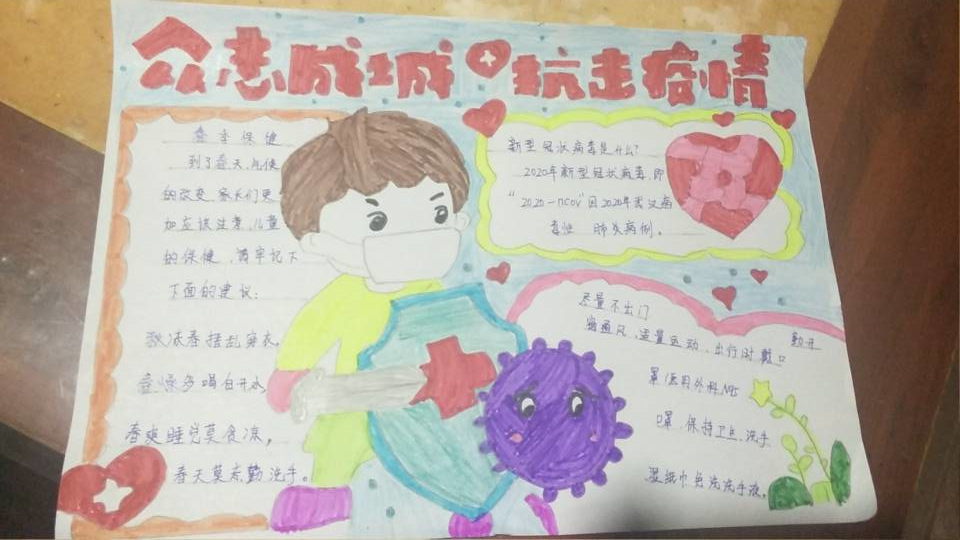 众志成城 抗击疫情
春季保健
到了春天,气候
的改变,家长们更
加应该注意,儿童
的保健,请牢记下
下面的建议:
春捂乱穿衣。
春燥多喝白开水,
春爽睡觉莫贪凉,
春天莫忘勤洗手。
新型冠状病毒是什么?
2020年新型冠状病毒,即
"2020-nCoV"因2020年武汉病
毒性 肺炎病例。
尽量不出门
勤开
窗通风,适量运动,出行时戴口
罩医用外科,N95
口罩,保持卫生,洗手
湿纸巾免洗洗手液。